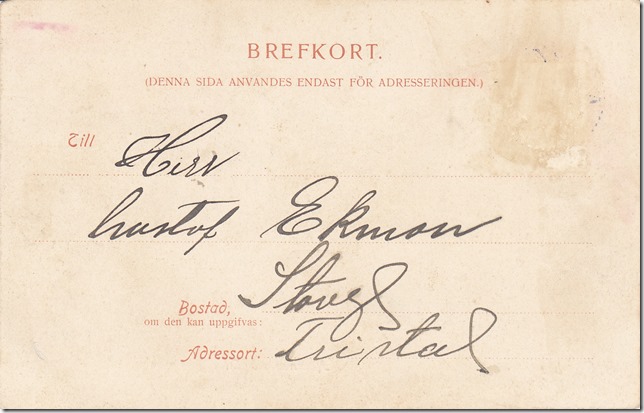 BREFKORT.
(DENNA SIDA ANVANDES ENDAST FÖR ADRESSERINGEN.)
Till Herr
Gustof Ekman
Bostad,
om den kan uppgifvas:
Adressort: